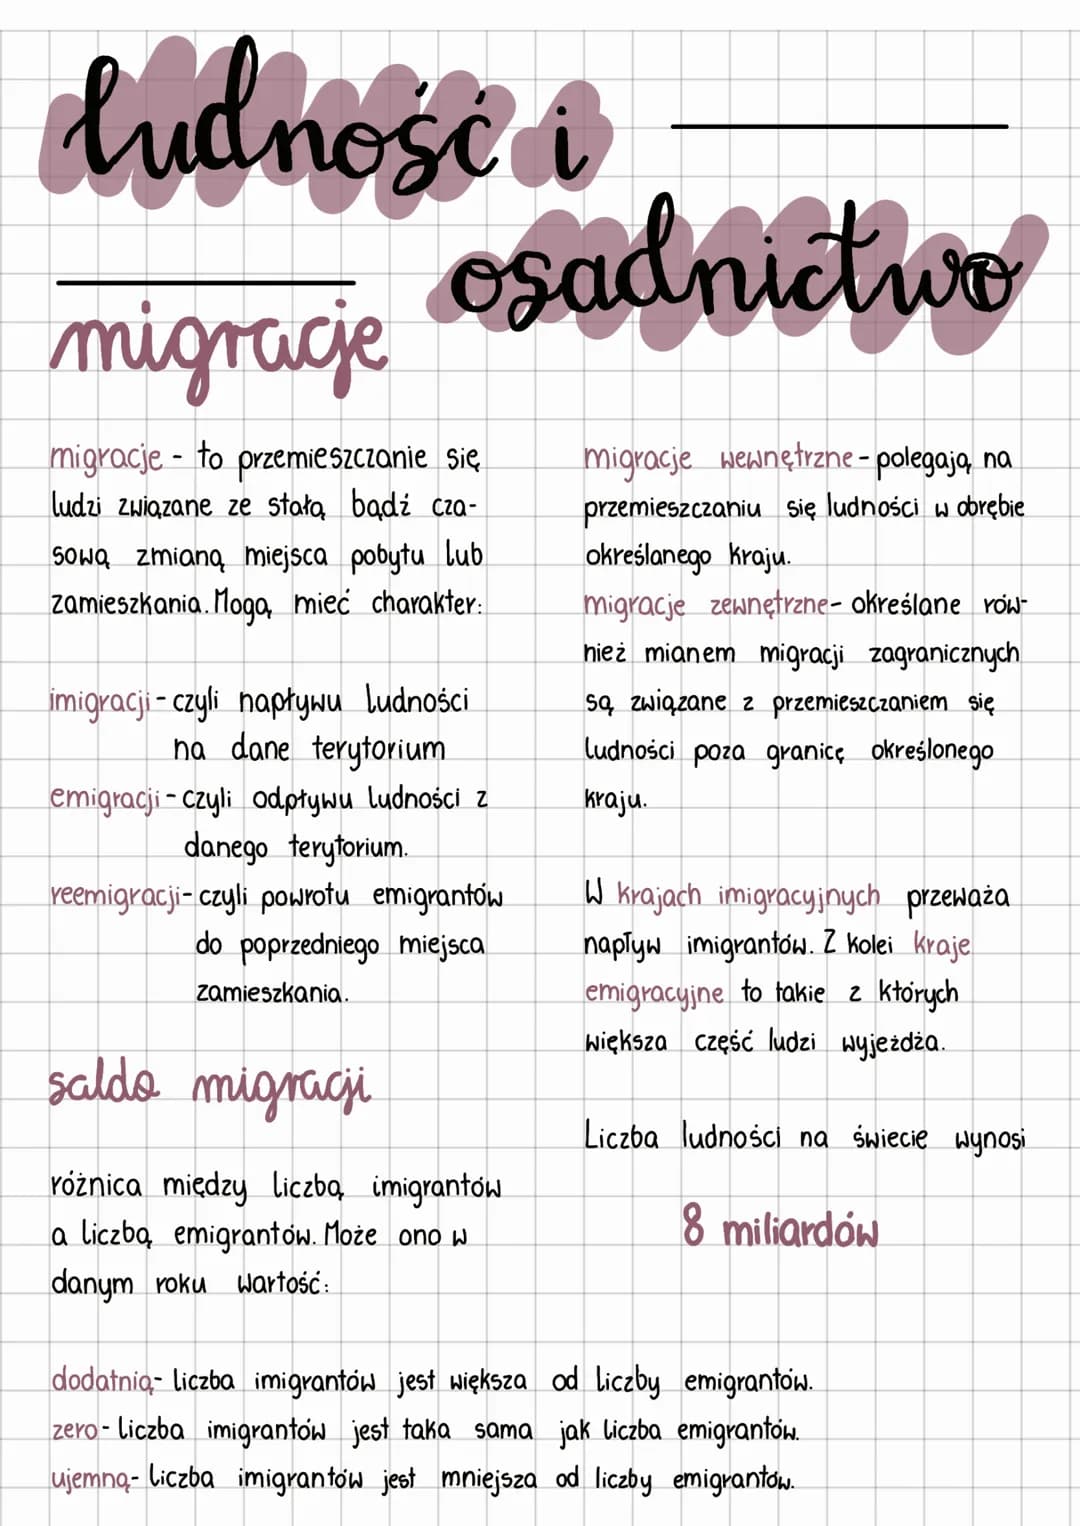 ludność i
osadnictwo
migracje
migracje - to przemieszczanie się
ludzi związane ze stałą bądź cza-
sową zmianą miejsca pobytu lub
zamieszkania. Mogą mieć charakter:
imigracji - czyli napływu ludności
na dane terytorium
emigracji - czyli odpływu ludności z
danego terytorium.
reemigracji - czyli powrotu emigrantów
do poprzedniego miejsca
zamieszkania.
saldo migracji
różnica między liczbą imigrantów
a liczbą emigrantów. Może ono w
danym roku wartość:
migracje wewnętrzne - polegają na
przemieszczaniu się ludności w obrębie
określanego kraju.
migracje zewnętrzne - określane rów-
nież mianem migracji zagranicznych
są związane z przemieszczaniem się
ludności poza granicę określonego
kraju.
W krajach imigracyjnych przeważa
napływ imigrantów. Z kolei kraje
emigracyjne to takie z których
większa część ludzi wyjeżdża.
Liczba ludności na świecie wynosi
8 miliardów
dodatnią - liczba imigrantów jest większa od liczby emigrantów.
zero - liczba imigrantów jest taka sama jak liczba emigrantów.
ujemną - liczba imigrantów jest mniejsza od liczby emigrantów.